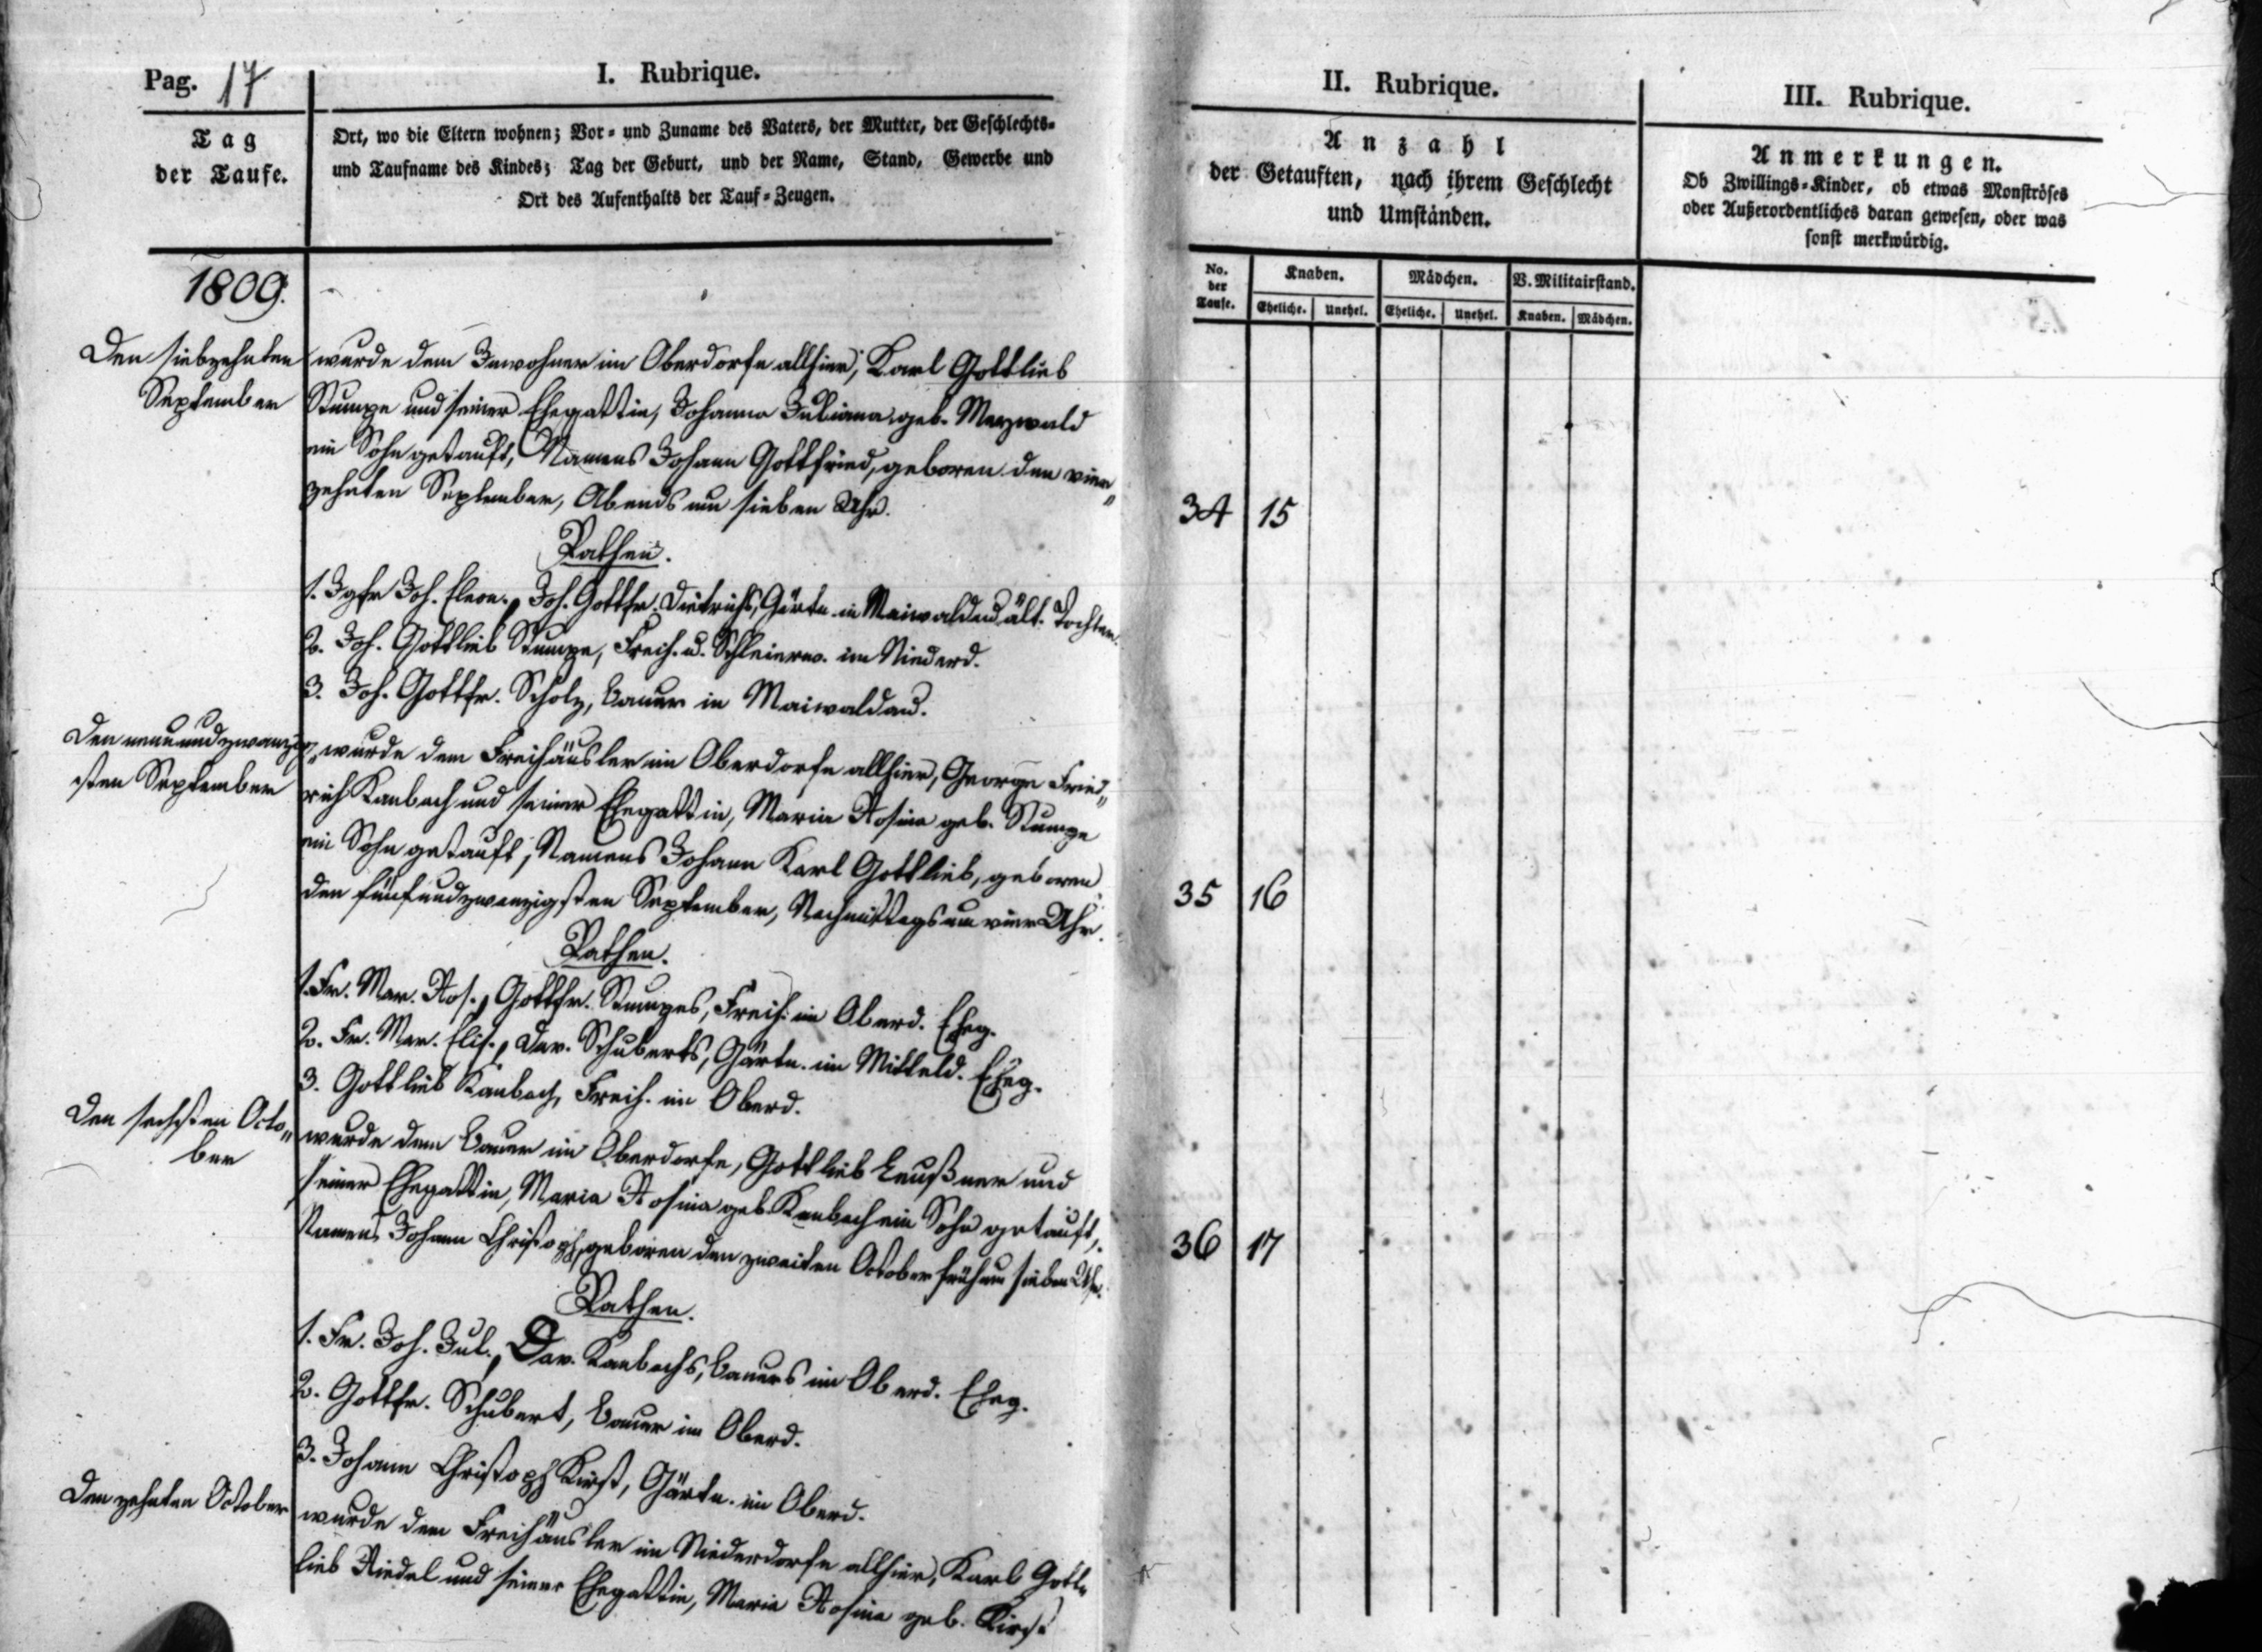 Pag. 17
I. Rubrique.
Tag
der Taufe.
Ort, wo die Eltern wohnen; Vor- und Zuname des Vaters, der Mutter, der Geschlechts-
und Taufname des Kindes; Tag der Geburt, und der Name, Stand, Gewerbe und
Ort des Aufenthalts der Tauf-Zeugen.
1809.
Den siebzehnten
September
wurde dem Inwohner im Oberdorfe allhier, Karl Gottlieb
Stumpe und seiner Ehegattin, Johanna Juliana geb. Maywald
ein Sohn getauft, Namens Johann Gottfried, geboren den vier„
zehnten September, Abends um sieben Uhr.
Pathen.
1. Jgfr Joh. Eleon., Joh. Gottfr. Dietrichs, Gärtn. in Maiwaldau ält. Tochter.
2. Joh. Gottlieb Stumpe, Freih. u. Schleierw. im Niederd.
3. Joh. Gottfr. Scholz, Bauer in Maiwaldau.
Den neunundzwanzig„
sten September
wurde dem Freihäusler im Oberdorfe allhier, George Fried„
rich Kanbach und seiner Ehegattin, Maria Rosina geb. Stumpe
ein Sohn getauft, Namens Johann Karl Gottlieb, geboren
den fünfundzwanzigsten September, Nachmittags um vier Uhr.
Pathen.
1. Fr. Mar. Ros., Gottfr. Stumpes, Freih. im Oberd. Eheg.
2. Fr. Mar. Elis., Dav. Schuberts, Gärtn. im Mitteld. Eheg.
3. Gottlieb Kanbach, Freih. im Oberd.
Den sechsten Octo„
ber
wurde dem Bauer im Oberdorfe, Gottlieb Leußner und
seiner Ehegattin, Maria Rosina geb. Kanbach ein Sohn getauft,
Namens Johann Christoph, geboren den zweiten October früh um sieben Uhr.
Pathen.
1. Fr. Joh. Jul., Dav. Kanbachs, Bauers im Oberd. Eheg.
2. Gottfr. Schubert, Bauer im Oberd.
3. Johann Christoph Kirst, Gärtn. im Oberd.
Den zehnten October
wurde dem Freihäusler im Niederdorfe allhier, Karl Gott„
lieb Riedel und seiner Ehegattin, Maria Rosina geb. Kirst
II. Rubrique.
Anzahl
der Getauften, nach ihrem Geschlecht
und Umständen.
No.
der
Taufe.
Knaben.
Mädchen.
V. Militairstand.
Eheliche. Unehel. Eheliche. Unehel. Knaben. Mädchen.
34 15
35 16
36 17
III. Rubrique.
Anmerkungen.
Ob Zwillings-Kinder, ob etwas Monströses
oder Außerordentliches daran gewesen, oder was
sonst merkwürdig.